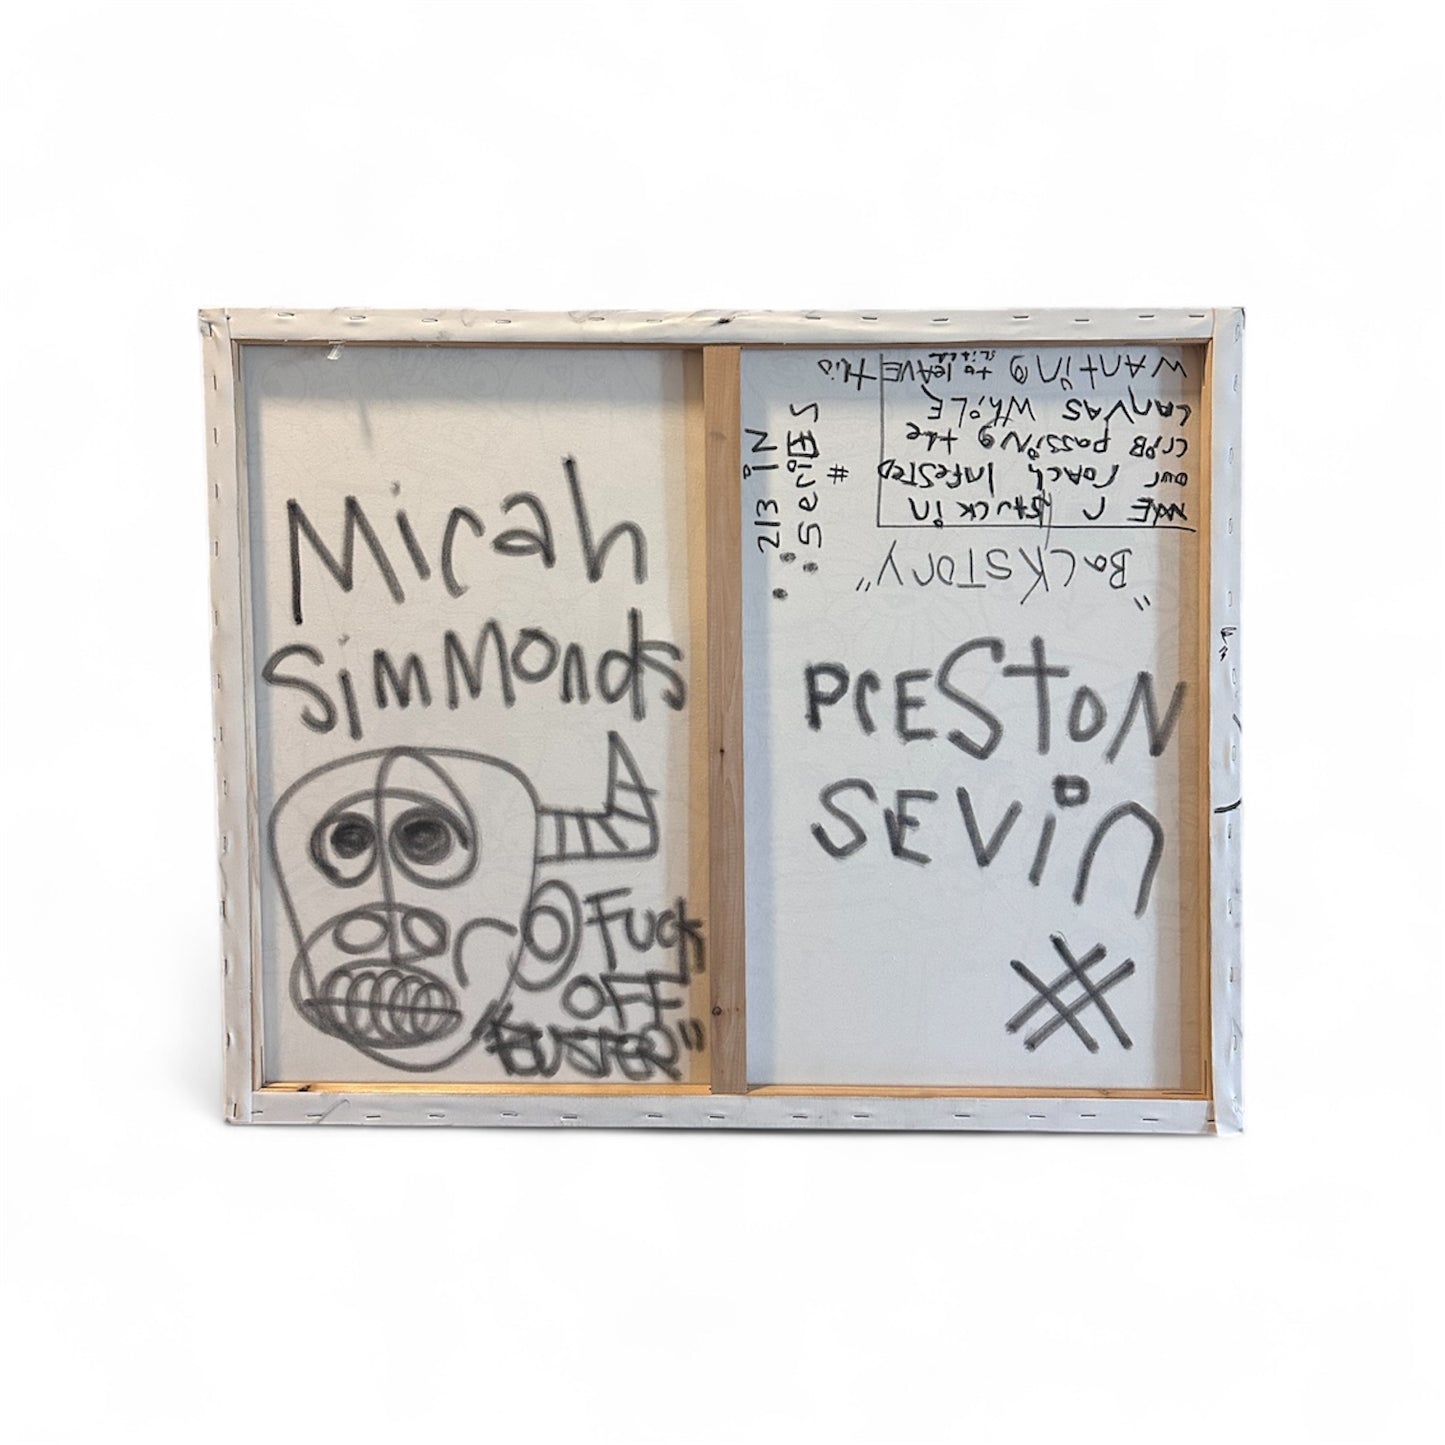 Micah
Simmonds
Fuck
OFF
"BUSTER"
2/3 iN
SeriES
#
"BaCKSTORY"
WE r Stuck in
our roach inFeSTED
CriB passiNg the
CANVAS WhiLE
WANTiNg to leAVE this
PrESTON
SEVin